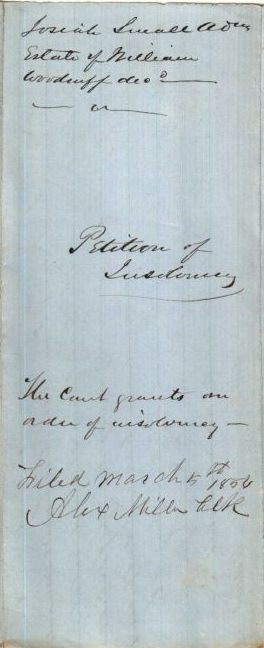 Josiah Small Adm
Estate of William
Woodruff decd
Petition of
Insolvency
The Court grants an
order of insolvency —
Filed March 5th 1856
Alex Miller Clk